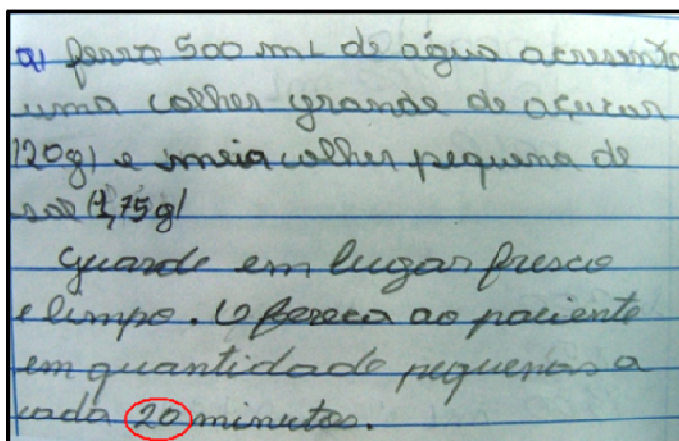 a) ferva 500 mL de água acresenta
uma colher grande de açucar
(20g) e meia colher pequena de
sal (1,75g)
Guarde em lugar fresco
e limpo. Ofereca ao paciente
em quantidade pequenas a
cada 20 minutos.